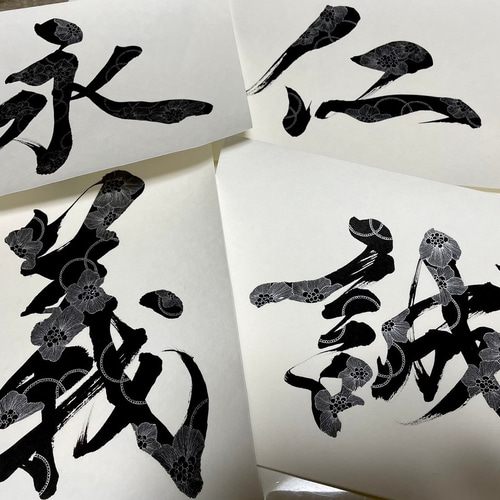 永
仁
義
誠